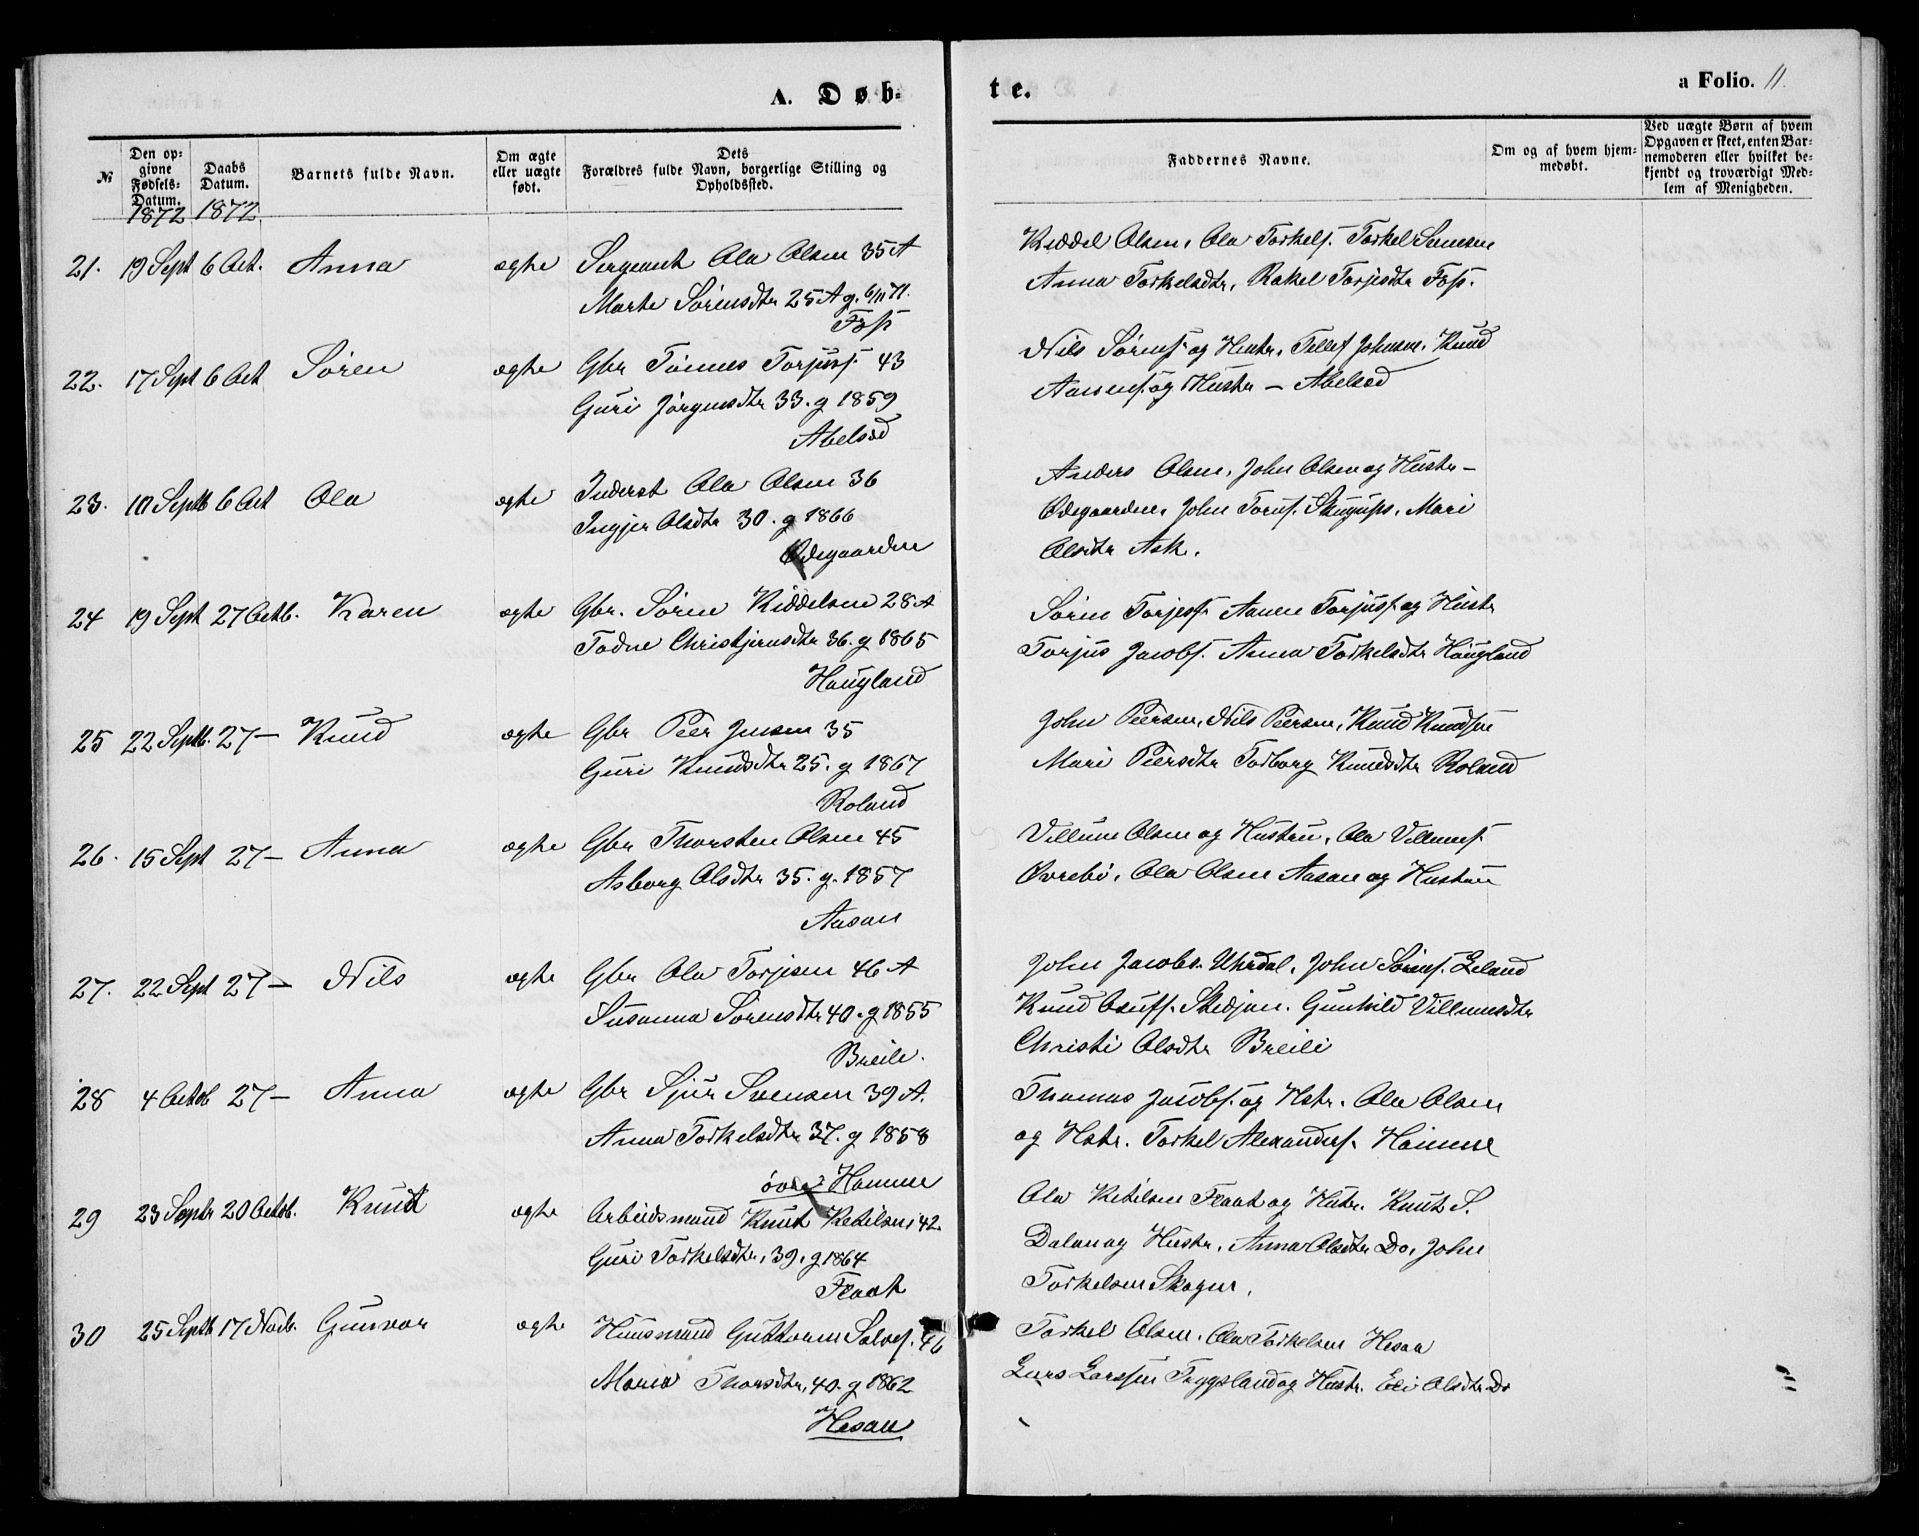 A. Døb-
te.
a Folio. 11.
№
Den op-
givne
Fødsels-
Datum.
1872
Daabs
Datum.
1872
Barnets fulde Navn.
Om ægte
eller uægte
født.
Dets
Forældres fulde Navn, borgerlige Stilling og
Opholdssted.
Faddernes Navne.
Om og af hvem hjem-
medøbt.
Ved uægte Børn af hvem
Opgaven er skeet, enten Bar-
nemoderen eller hvilket be-
kjendt og troværdigt Med-
lem af Menigheden.
21. 19 Sept 6 Oct. Anna ægte Sergeant Ola Olsen 35 A
Marte Sørensdtr 25 A g. 6/11 71.
Foss
Kiddel Olsen, Ola Torkels. Torkel
Anna Torkelsdtr, Rakel Torjesdtr Foss.
22. 17 Sept 6 Oct Søren ægte Gbr Tønnes Torjuss. 43
Guri Jørgensdtr 33. g 1859
Abelsæd
Nils Sørens. og Hustr, Tellef Johnsen, Knud
Aanens. og Hustr — Abelsæd
23. 10 Septb 6 Oct Ola ægte Inderst Ola Olsen 36
Ingjer Olsdtr 30. g 1866
Ødegaarden
Anders Olsen, John Olsen og Hustr —
Ødegaarden, John Mari
Olsdtr Ask.
24 19 Sept 27 Octb. Karen ægte Gbr. Søren Kiddelsen 28 A
Todne Christjernsdtr 36. g 1865
Haugland
Søren Torjess. Aanen Torjuss. og Hustr
Torjus Jacobs. Anna Torkelsdtr Haugland
25 22 Septb. 27 — Knud ægte Gbr Peer Jensen 35
Guri Knudsdtr 25. g 1867
Roland
John Peersen, Nils Peersen, Knud Knudsen
Mari Peersdtr Torborg Knudsdtr Roland
26. 15 Sept 27 — Anna ægte Gbr Thorsten Olsen 45
Asborg Olsdtr 35. g. 1857
Aasan
Villum Olsen og Hustru, Ola Villums.
Øvrebø, Ola Olsen Aasan og Hustru
27. 22 Sept 27 — Nils ægte Gbr Ola Torjsen 46 A
Susanna Sørensdtr 40. g 1855
Breili.
John Jacobs. Uhrdal, John Sørens. Eeland
Knud Skedjan. Gunhild Villumsdtr
Christi Olsdtr Breili
28 4 Octob 27 — Anna ægte Gbr Sjur Svensen 39 A.
Anna Torkelsdtr 37. g 1858
øvre Homme
Thomas Jacobs. og Hstr. Ola Olsen
og Hstr. Torkel Alexanders. Homme
29 23 Septr 20 Octob. Knut ægte Arbeidsmand Knut Ketilsen 42
Guri Torkelsdtr, 39. g 1864
Flaat
Ola Ketilsen Flaat og Hstr. Knut S.
Dalan og Hustr, Anna Olsdtr Do, John
Torkelsen
30 25 Septb 17 Novb. Gunvor ægte Huusmand Guttorm Salves. 46
Maria Thorsdtr, 40. g 1862
Hesaa
Torkel Olsen. Ola Torkelsen Hesaa
Lars Larssen Tryggsland og Hustr. Eli Olsdtr Do